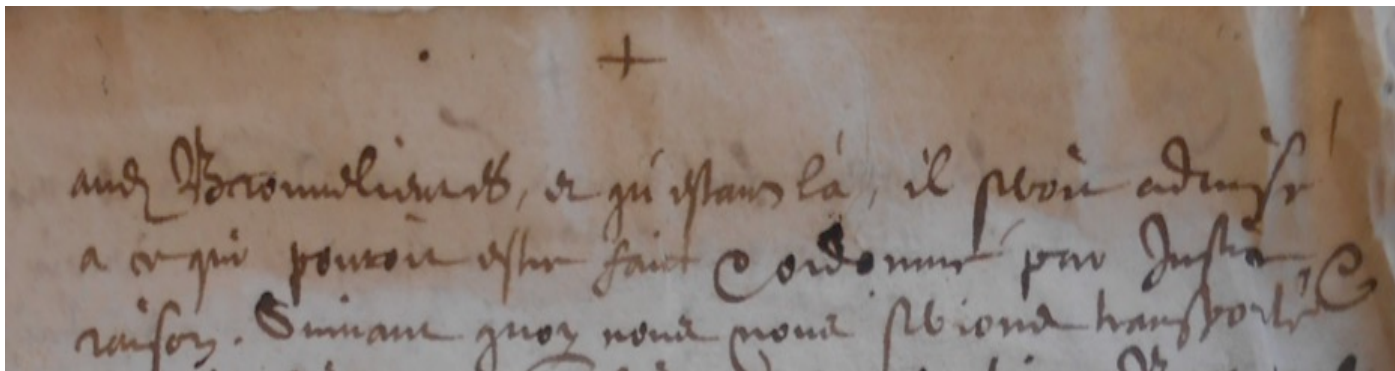 +
aud Bavonvelieures, et qu'estans là, il seroit aduisé
a ce qui pouroit estre faict & ordonné par Justice, &
raison. Suiuant quoy nous nous serions transporté